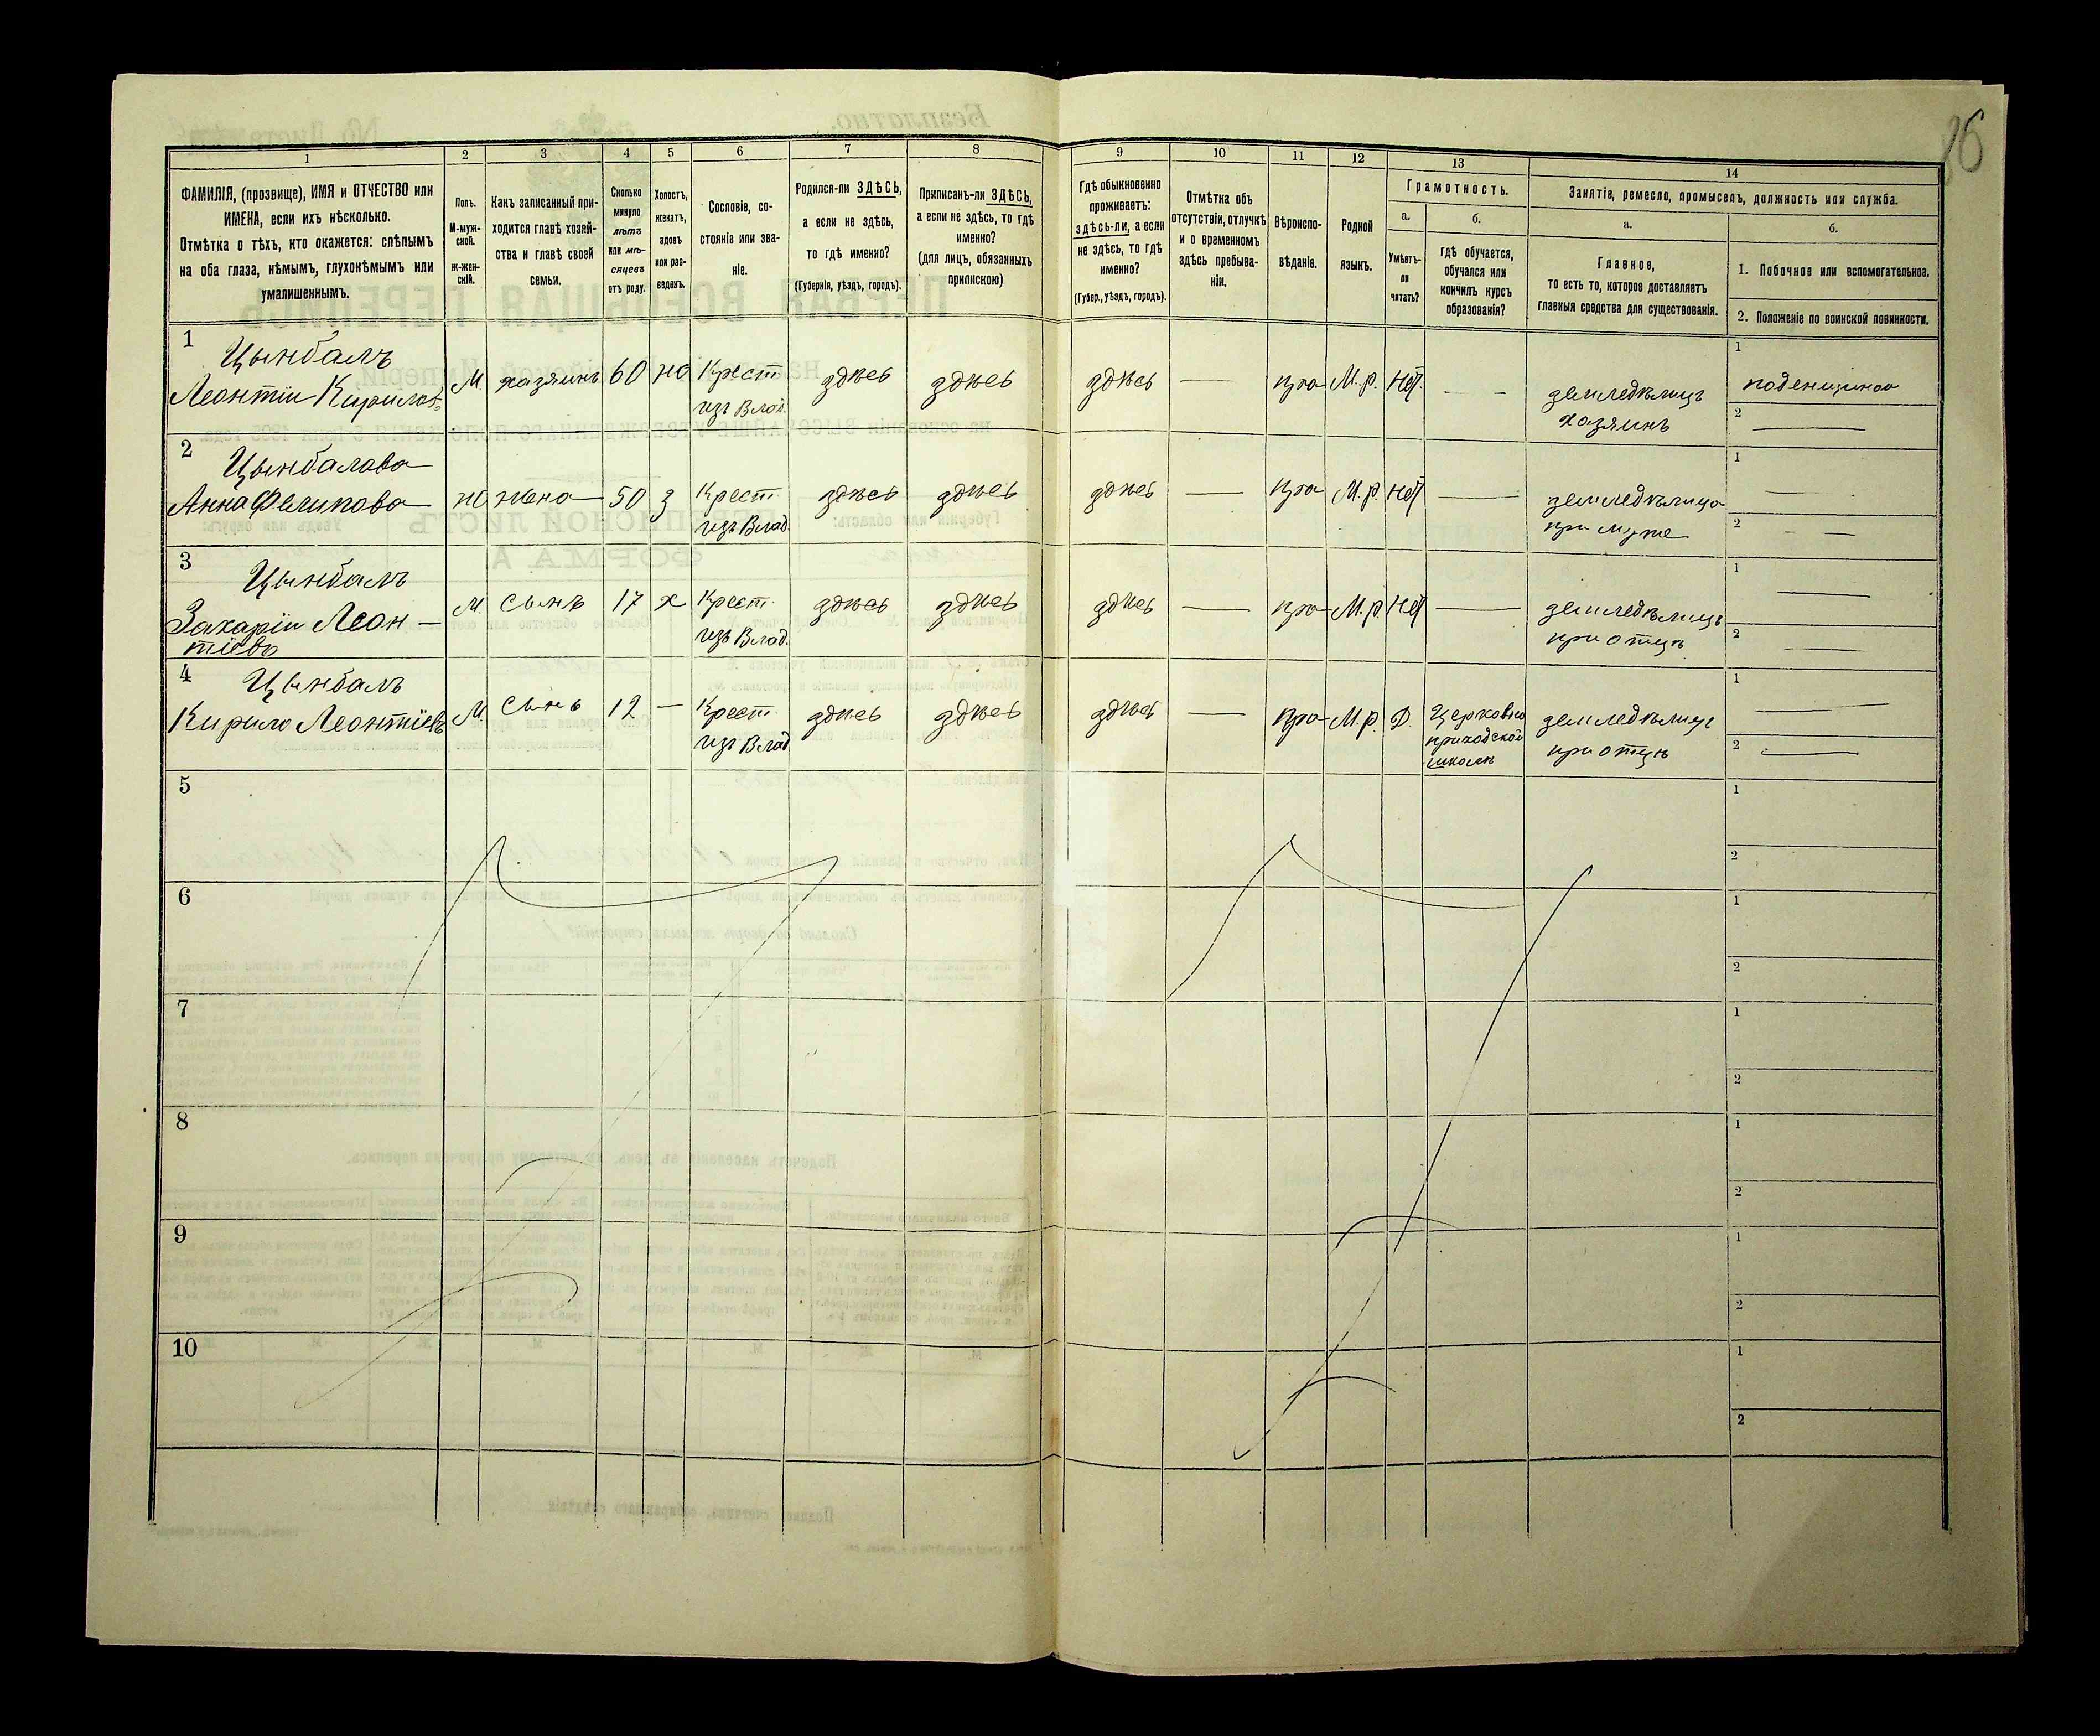 86
1 2 3 4 5 6 7 8 9 10 11 12 13 14
ФАМИЛІЯ, (прозвище), ИМЯ и ОТЧЕСТВО или
ИМЕНА, если ихъ нѣсколько.
Отмѣтка о тѣхъ, кто окажется: слѣпымъ
на оба глаза, нѣмымъ, глухонѣмымъ или
умалишеннымъ.
Полъ.
М-муж-
ской.
Ж-жен-
скій.
Какъ записанный при-
ходится главѣ хозяй-
ства и главѣ своей
семьи.
Сколько
минуло
лѣтъ
или мѣ-
сяцевъ
отъ роду.
Холостъ,
женатъ,
вдовъ
или раз-
веденъ.
Сословіе, со-
стояніе или зва-
ніе.
Родился-ли ЗДѢСЬ,
а если не здѣсь,
то гдѣ именно?
(Губернія, уѣздъ, городъ).
Приписанъ-ли ЗДѢСЬ,
а если не здѣсь, то гдѣ
именно?
(для лицъ, обязанныхъ
припискою)
Гдѣ обыкновенно
проживаетъ:
здѣсь-ли, а если
не здѣсь, то гдѣ
именно?
(Губер., уѣздъ, городъ).
Отмѣтка объ
отсутствіи, отлучкѣ
и о временномъ
здѣсь пребыва-
ніи.
Вѣроиспо-
вѣданіе.
Родной
языкъ.
Грамотность.
а.
Умѣетъ-
ли
читать?
б.
Гдѣ обучается,
обучался или
кончилъ курсъ
образованія?
Занятіе, ремесло, промыселъ, должность или служба.
а.
Главное,
то есть то, которое доставляетъ
главныя средства для существованія.
б.
1. Побочное или вспомогательное.
2. Положеніе по воинской повинности.
1 Цынбалъ 1
Леонтіи Кирилов. М. хазяинъ 60 жа Крест. здѣсь здѣсь здѣсь — пра М.р. Нѣт. — земледѣлицъ поденщиною
изъ Влад. хазяинъ 2 —
2 Цынбалова 1 —
Анна Филипова ж жена 50 з Крест. здѣсь здѣсь здѣсь — пра М.р. Нѣт — земледѣлица
изъ Влад. при муже 2 —
3 Цынбалъ 1 —
Захаріи Леон- М. сынъ 17 х Крест. здѣсь здѣсь здѣсь — пра М.р. Нѣт — земледѣлицъ
тіевъ изъ Влад. при отцѣ 2 —
4 Цынбалъ 1 —
Кирило Леонтіевъ М. сынъ 12 — Крест. здѣсь здѣсь здѣсь — пра М.р. Д. Церковно земледѣлицъ
изъ Влад. приходской при отцѣ 2 —
школѣ
5 1
2
6 1
2
7 1
2
8 1
2
9 1
2
10 1
2